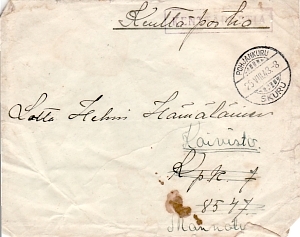 Kenttäpostia
POHJANKURU
25.VIII.43-8
SKURU
Lotta Helmi Hämäläinen
Koivisto
Kpk. 7
8547